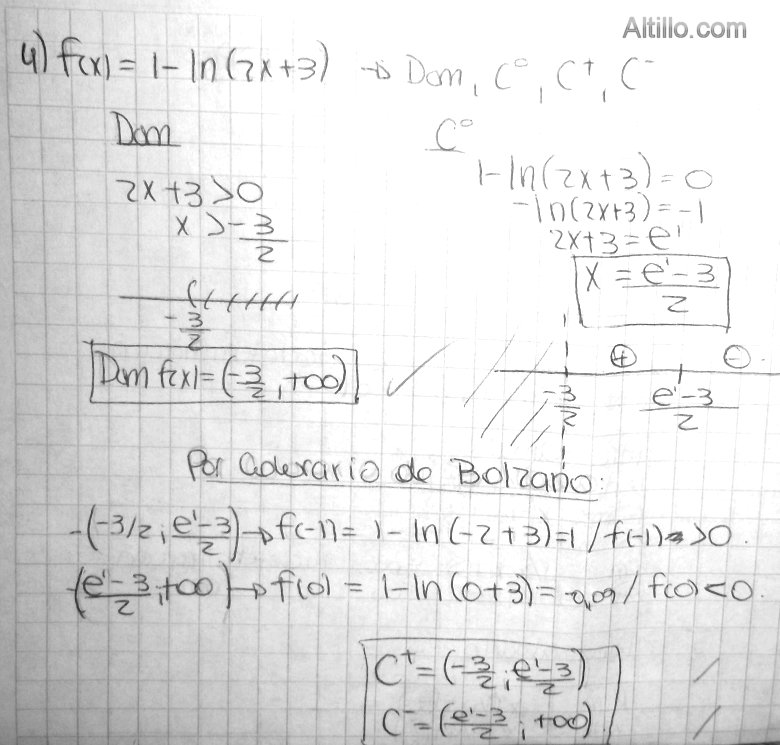 Altillo.com
4) f(x) = 1 - ln(2x+3) → Dom, C°, C⁺, C⁻
Dom
2x+3>0
x > -3/2
-3/2
Dom f(x) = (-3/2, +∞)
C°
1-ln(2x+3) = 0
-ln(2x+3) = -1
2x+3 = e¹
x = e¹-3/2
+ -
-3/2 e¹-3/2
Por de Bolzano:
-(-3/2; e¹-3/2) → f(-1) = 1 - ln(-2+3) = 1 / f(-1) > 0.
-(e¹-3/2; +∞) → f(0) = 1-ln(0+3) = -0,09 / f(0) < 0.
C⁺ = (-3/2; e¹-3/2)
C⁻ = (e¹-3/2; +∞)